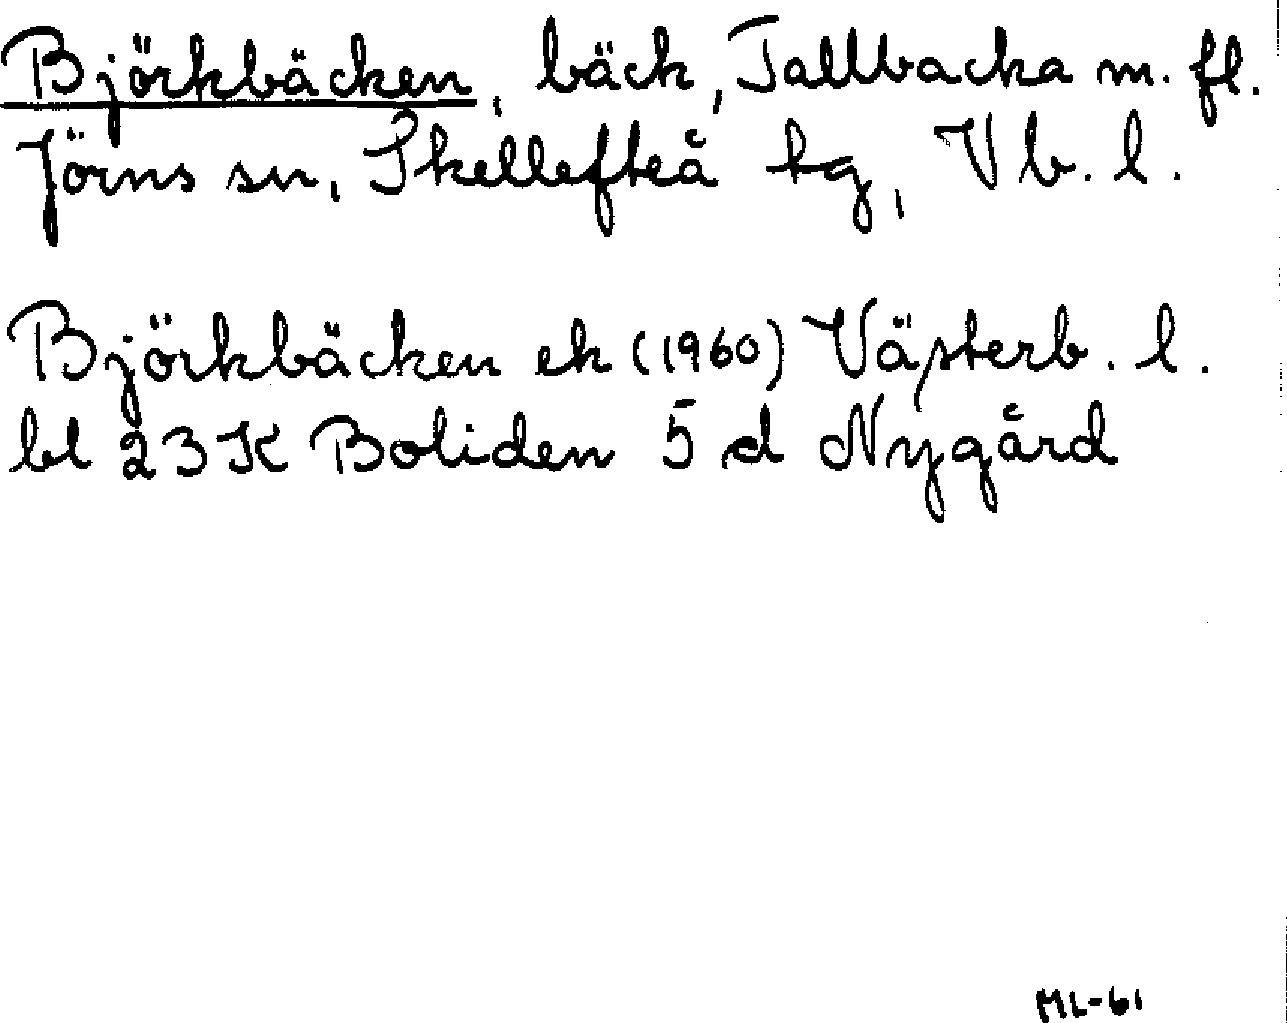 Björkbäcken, bäck, Tallbacka m. fl.
Jörns sn, Skellefteå tg, Vb. l.
Björkbäcken ek (1960) Västerb. l.
bl 23K Boliden 5 d Nygård
ML-61